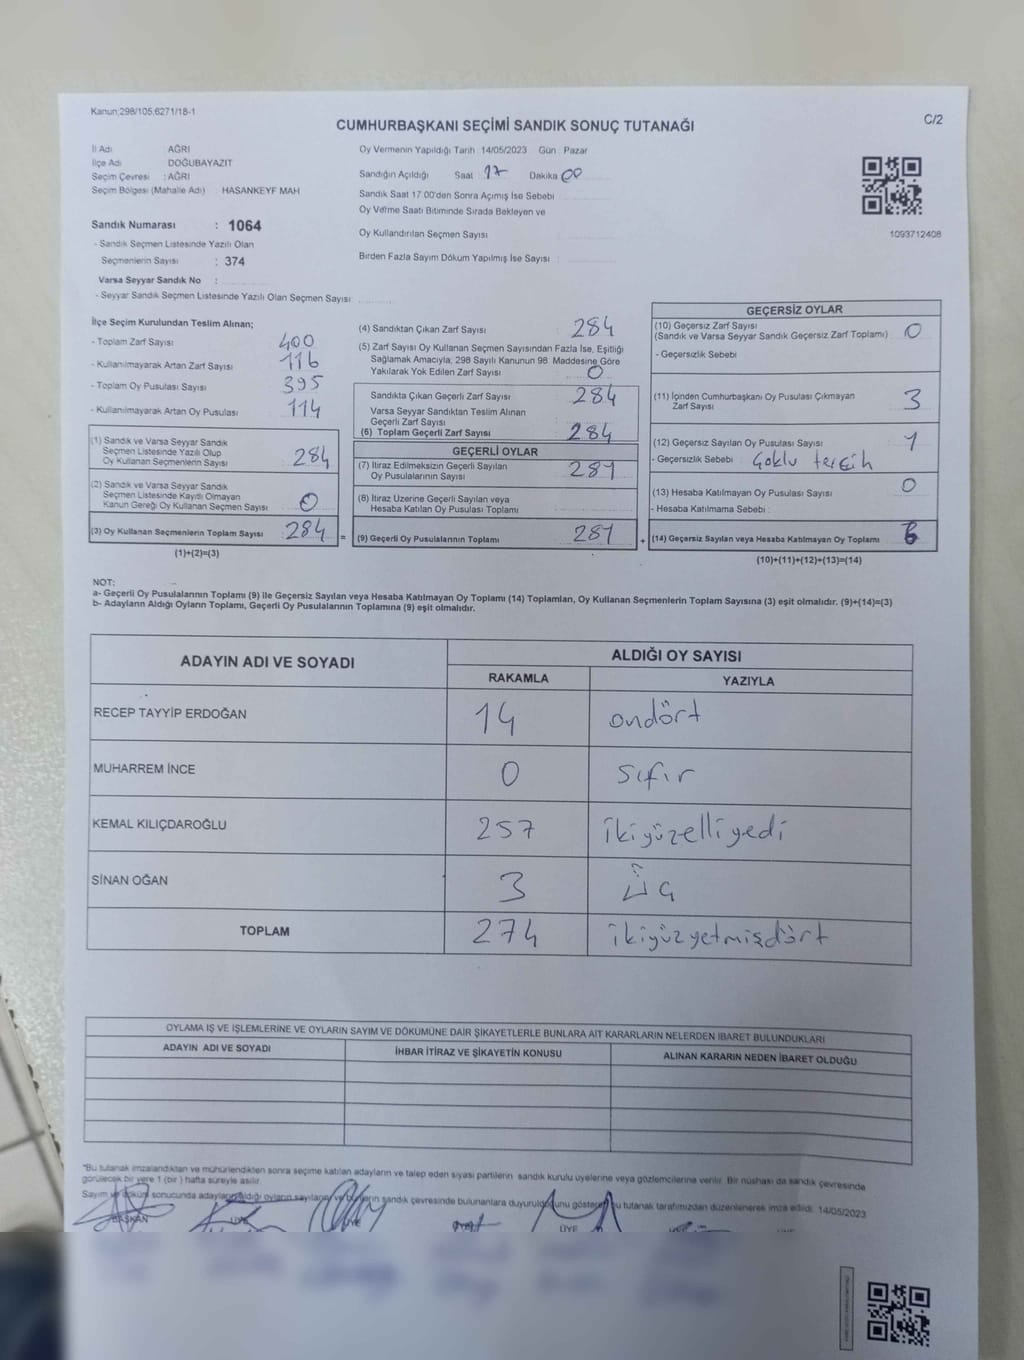 Kanun;298/105,6271/18-1
C/2
CUMHURBAŞKANI SEÇİMİ SANDIK SONUÇ TUTANAĞI
İl Adı AĞRI
İlçe Adı DOĞUBAYAZIT
Seçim Çevresi : AĞRI
Seçim Bölgesi (Mahalle Adı) : HASANKEYF MAH
Oy Vermenin Yapıldığı Tarih 14/05/2023 Gün : Pazar
Sandığın Açıldığı Saat 17 Dakika 00
Sandık Saat 17.00'den Sonra Açımış İse Sebebi
Oy Verme Saati Bitiminde Sırada Bekleyen ve
Oy Kullandırılan Seçmen Sayısı
Birden Fazla Sayım Döküm Yapılmış İse Sayısı :
1093712408
Sandık Numarası : 1064
- Sandık Seçmen Listesinde Yazılı Olan
Seçmenlerin Sayısı : 374
Varsa Seyyar Sandık No :
- Seyyar Sandık Seçmen Listesinde Yazılı Olan Seçmen Sayısı:
İlçe Seçim Kurulundan Teslim Alınan;
- Toplam Zarf Sayısı 400
- Kullanılmayarak Artan Zarf Sayısı 116
- Toplam Oy Pusulası Sayısı 395
- Kullanılmayarak Artan Oy Pusulası 114
(1) Sandık ve Varsa Seyyar Sandık
Seçmen Listesinde Yazılı Olup
Oy Kullanan Seçmenlerin Sayısı 284
(2) Sandık ve Varsa Seyyar Sandık
Seçmen Listesinde Kayıtlı Olmayan
Kanun Gereği Oy Kullanan Seçmen Sayısı 0
(3) Oy Kullanan Seçmenlerin Toplam Sayısı 284 =
(1)+(2)=(3)
(4) Sandıktan Çıkan Zarf Sayısı 284
(5) Zarf Sayısı Oy Kullanan Seçmen Sayısından Fazla İse, Eşitliği
Sağlamak Amacıyla, 298 Sayılı Kanunun 98. Maddesine Göre
Yakılarak Yok Edilen Zarf Sayısı 0
Sandıkta Çıkan Geçerli Zarf Sayısı 284
Varsa Seyyar Sandıktan Teslim Alınan
Geçerli Zarf Sayısı
(6) Toplam Geçerli Zarf Sayısı 284
GEÇERLİ OYLAR
(7) İtiraz Edilmeksizin Geçerli Sayılan
Oy Pusulalarının Sayısı 281
(8) İtiraz Üzerine Geçerli Sayılan veya
Hesaba Katılan Oy Pusulası Toplamı
(9) Geçerli Oy Pusulalarının Toplamı 281 +
GEÇERSİZ OYLAR
(10) Geçersiz Zarf Sayısı
(Sandık ve Varsa Seyyar Sandık Geçersiz Zarf Toplamı) 0
- Geçersizlik Sebebi
(11) İçinden Cumhurbaşkanı Oy Pusulası Çıkmayan
Zarf Sayısı 3
(12) Geçersiz Sayılan Oy Pusulası Sayısı 1
- Geçersizlik Sebebi : Çoklu tercih
(13) Hesaba Katılmayan Oy Pusulası Sayısı 0
- Hesaba Katılmama Sebebi :
(14) Geçersiz Sayılan veya Hesaba Katılmayan Oy Toplamı
(10)+(11)+(12)+(13)=(14)
NOT:
a- Geçerli Oy Pusulalarının Toplamı (9) ile Geçersiz Sayılan veya Hesaba Katılmayan Oy Toplamı (14) Toplamları, Oy Kullanan Seçmenlerin Toplam Sayısına (3) eşit olmalıdır. (9)+(14)=(3)
b- Adayların Aldığı Oyların Toplamı, Geçerli Oy Pusulalarının Toplamına (9) eşit olmalıdır.
ADAYIN ADI VE SOYADI ALDIĞI OY SAYISI
RAKAMLA YAZIYLA
RECEP TAYYİP ERDOĞAN 14 ondört
MUHARREM İNCE 0 sıfır
KEMAL KILIÇDAROĞLU 257 ikiyüzelliyedi
SİNAN OĞAN 3 üç
TOPLAM 274 ikiyüzyetmişdört
OYLAMA İŞ VE İŞLEMLERİNE VE OYLARIN SAYIM VE DÖKÜMÜNE DAİR ŞİKAYETLERLE BUNLARA AİT KARARLARIN NELERDEN İBARET BULUNDUKLARI
ADAYIN ADI VE SOYADI İHBAR İTİRAZ VE ŞİKAYETİN KONUSU ALINAN KARARIN NEDEN İBARET OLDUĞU
*Bu tutanak imzalandıktan ve mühürlendikten sonra seçime katılan adayların ve talep eden siyasi partilerin sandık kurulu üyelerine veya gözlemcilerine verilir. Bir nüshası da sandık çevresinde
görülecek bir yere 1 (bir ) hafta süreyle asılır.
Sayım ve döküm sonucunda adayların aldığı oyların sayılarını ve bunların sandık çevresinde bulunanlara duyurulduğunu gösteren bu tutanak tarafımızdan düzenlenerek imza edildi. 14/05/2023
BAŞKAN ÜYE ÜYE ÜYE